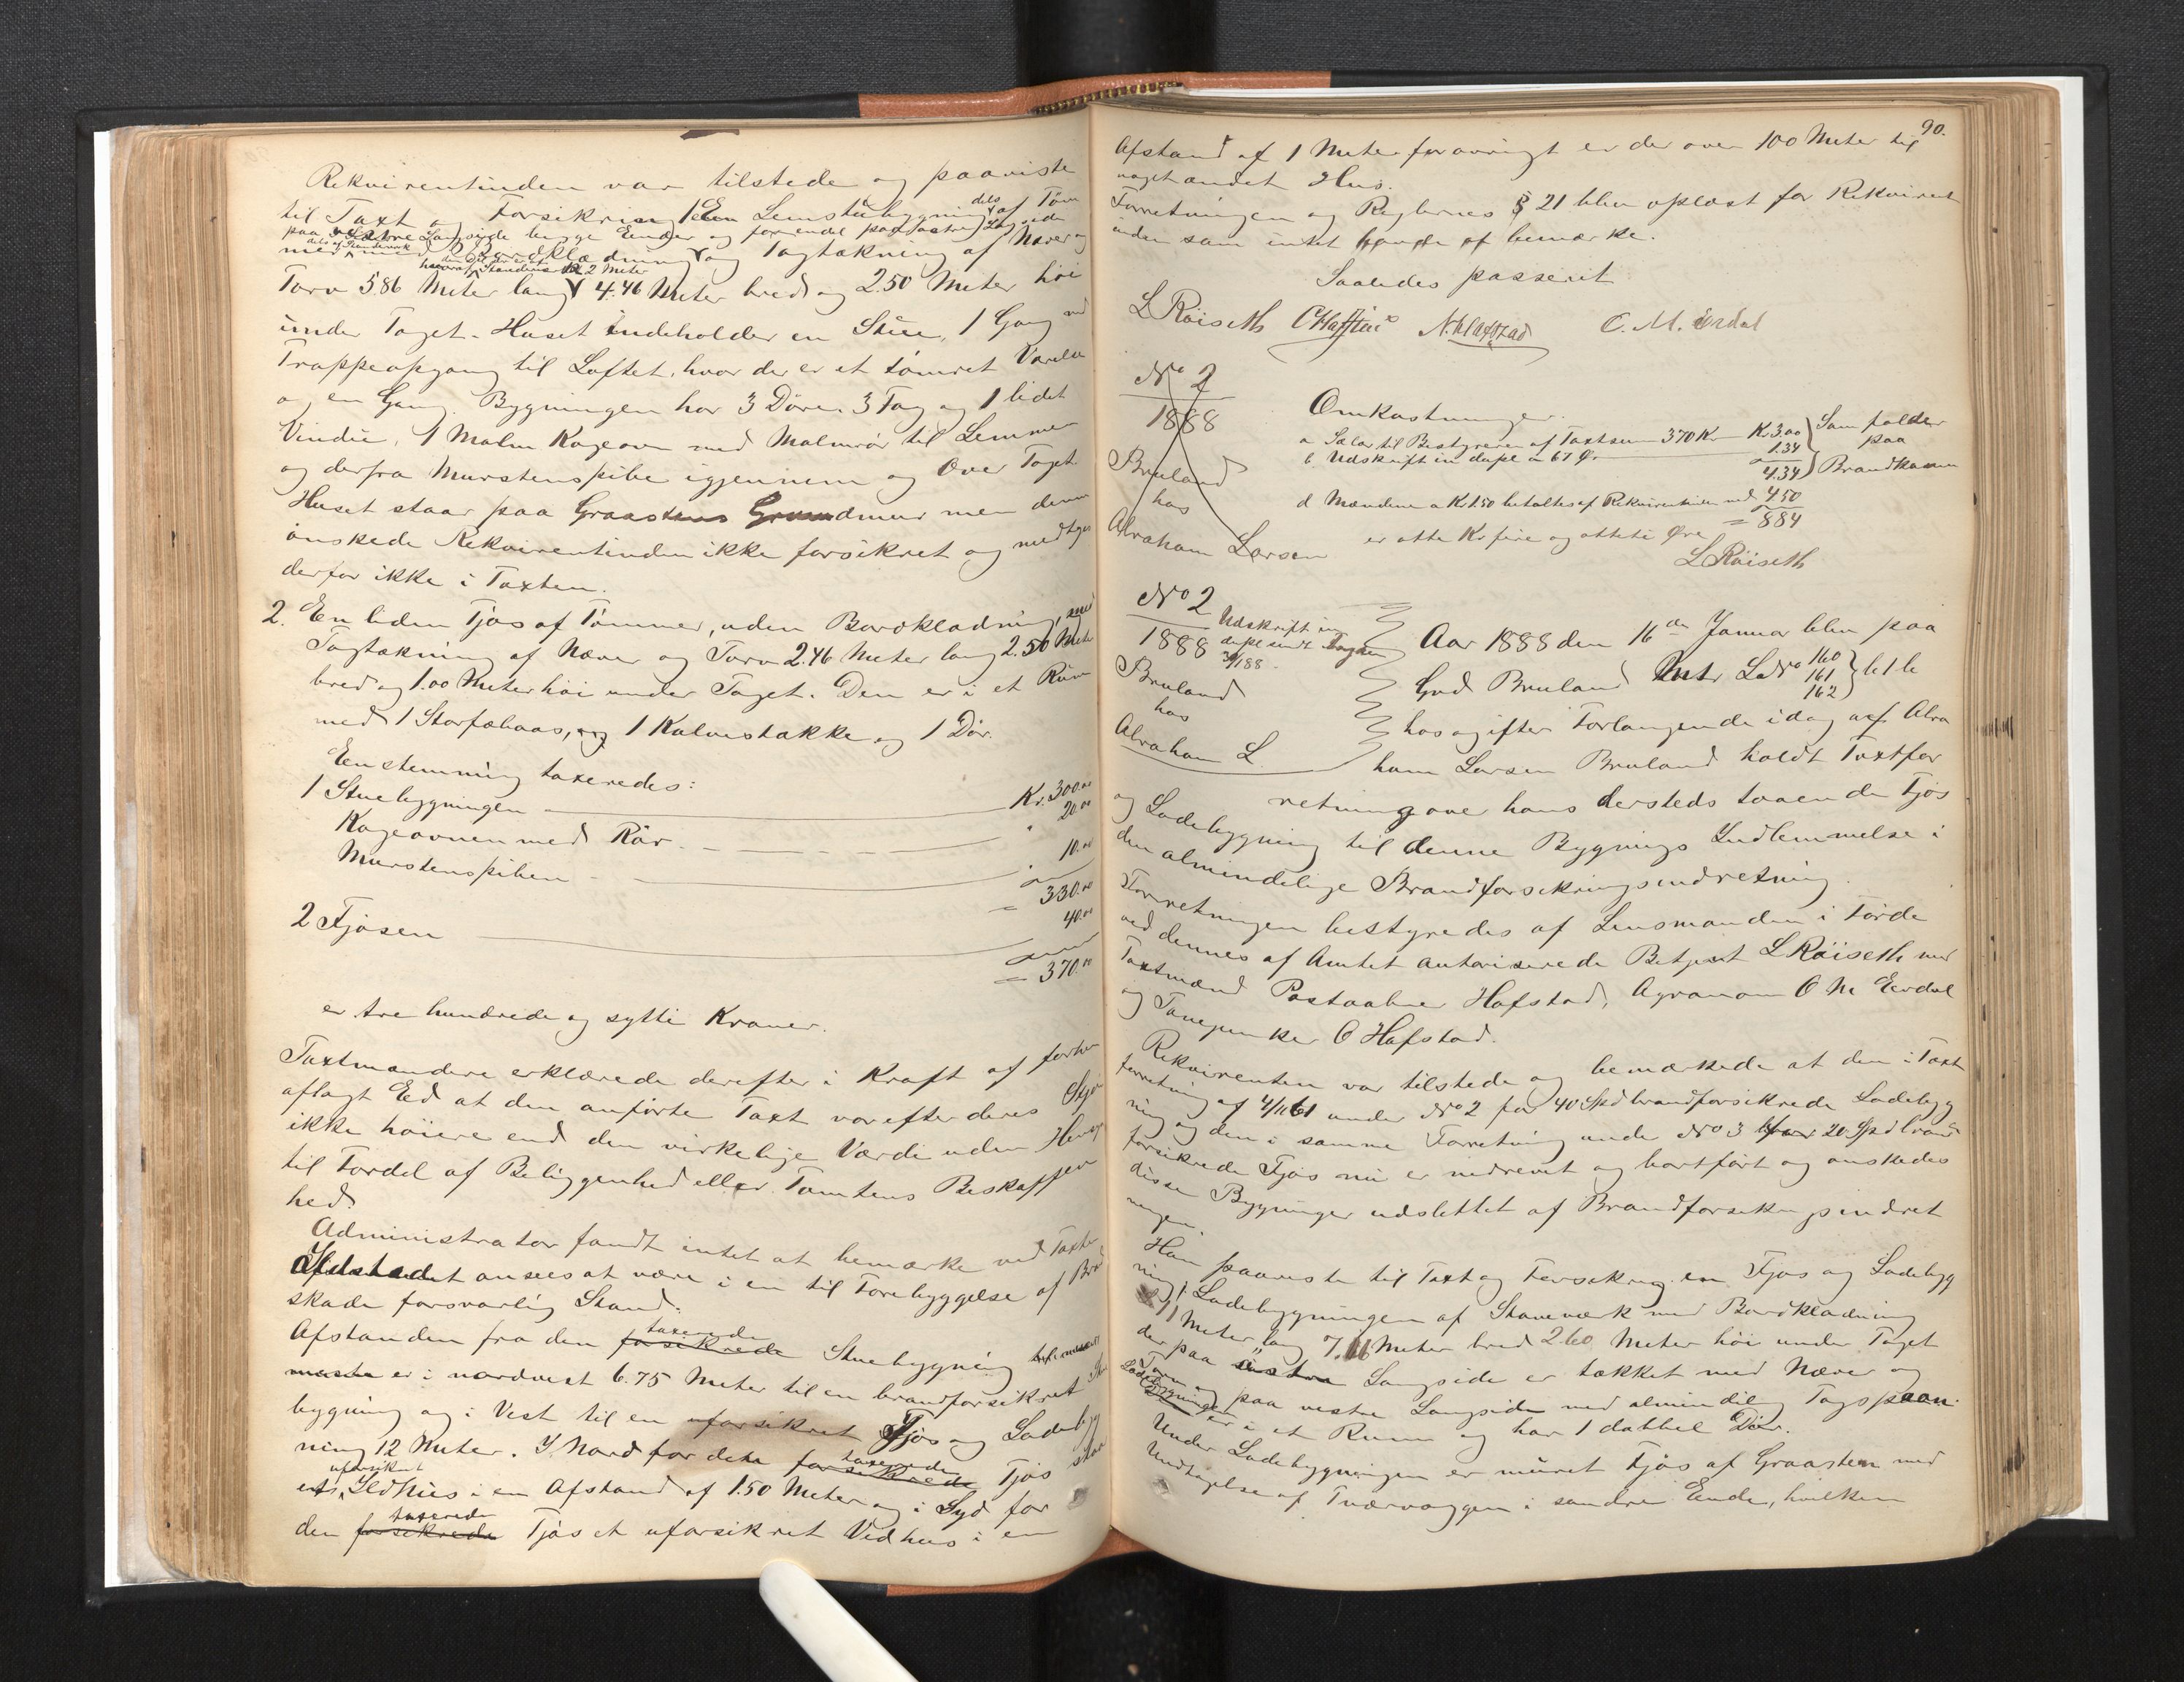 Rekvirentinden var tilstede og paaviste
til Taxt og Forsikring 1 Een Lemstubygning dels af Töm
paa vestre Langside begge Ender og for endel paa østre Langside
dels af Standverk
med Bordklædning og Tagtækning af Næver og
hvoraf Standværk 2 Meter
Torv 5.86 Meter lang 4.46 Meter bred og 2.50 Meter höi
under Taget. Huset indeholder en Stue, 1 Gang med
Trappeopgang til Loftet, hvor der er et tömret Værelse
og en Gang. Bygningen har 3 Döre 3 Fag og 1 lidet
Vindu, 1 Malm Kogeovn med Malmrör til Lemmen
og derfra Murstenspibe igjennem og Over Taget.
Huset staar paa Graastens Grundmur men denne
önskede Rekvirentinden ikke forsikret og medtages
derfor ikke i Taxten.
2. En liden Fjös af Tömmer, uden Bordklædning, med
Tagtækning af Næver og Torv 2.46 Meter lang 2.50 Meter
bred og 1.00 Meter höi under Taget. Den er i et Rum
med 1 Storfæbaas, og 1 Kalvestakke og 1 Dör.
Eenstemmig taxeredes:
1 Stuebygningen Kr. 300.00
Kogeovnen med Rör " 20.00
Murstenspiben 10.00
= 330.00
2 Fjösen 40.00
= 370.00
er tre hundrede og sytti Kroner.
Taxtmændene erklærede derefter i Kraft af forhen
aflagt Ed at den anförte Taxt var efter deres Skjön
ikke höiere end den virkelige Værdi uden Hensyn
til Fordel af Beliggenhed eller Tomtens Beskaffen
hed.
Administrator fandt intet at bemærke ved Taxten
Ildstedet ansees at være i en til Forebyggelse af Brand
skade forsvarlig Stand.
taxerede
Afstanden fra den forsikrede Stuebygning til næst
mæste er i nordvest 6.75 Meter til en brandforsikret Stue
bygning og i Vest til en uforsikret Fjös og Ladebyg
ning 12 Meter. I Nord for den taxerede forsikrede Fjös staar
uforsikret
et Ildhus i en Afstand af 1.50 Meter og i Syd for
taxerede
den forsikrede Fjös et uforsikret Vedhus i en
90.
Afstand af 1 Meter forøvrigt er der over 100 Meter til
noget andet Hus.
Forretningen og Reglernes § 21 blev oplæst for Rekvirent
inden som intet havde at bemærke.
Saaledes passeret
L Röiseth O Hafstad N. Hafstad O. M. Erdal
No 2
1888
Bruland
hos
Abraham Larsen
Omkostninger.
a Salær til Bestyreren af Taxtsum 370 Kr Kr 3.00
b Udskrift in duplo a 67 Ø. 1.34
4.34
Som falder
paa
Brandkassen
d Mændene a Kr 1.50 betaltes af Rekvirentinden med 4.50
= 8.84
er otte Kr fire og otteti Øre
L Röiseth
No 2
1888
Udskrift in
duplo sendt Fogden
Bruland
hos
Abraham L.
Aar 1888 den 16de Januar blev paa
Grd Bruland Mtr LNo 160 161 162
hos og efter Forlangende idag af Abra
ham Larsen Bruland holdt Taxtfor
retning over hans dersteds staaende Fjös
og Ladebygning til denne Bygnings Indlemmelse i
den almindelige Brandforsikringsindretning.
Forretningen bestyredes af Lensmanden i Förde
ved dennes af Amtet autoriserede Betjent L Röiseth med
Taxtmænd Postaabner Hafstad, Agronom O M Erdal
og O Hafstad.
Rekvirenten var tilstede og bemærkede at den i Taxt
forretning af 4/11 61 under No 2 for 40 Spd brandforsikrede Ladebyg
ning og den i samme Forretning under No 3 for 20 Spd brand
forsikrede Fjös nu er nedrevet og bortfört og önskedes
disse Bygninger udslettet af Brandforsikringsindret
ningen.
Han paaviste til Taxt og Forsikring en Fjös og Ladebyg
ning. 1 Ladebygningen af Staveværk med Bordklædning
11 Meter lang 7.16 Meter bred 2.60 Meter höi under Taget
der paa östre Langside er tækket med Næver og
Torv og paa vestre Langside med almindelig Tagspaan.
Ladebygningen
er i et Rum og har 1 dobbel Dör.
Under Ladebygningen er muret Fjös af Graasten med
Undtagelse af Tværvæggen i søndre Ende, hvilken